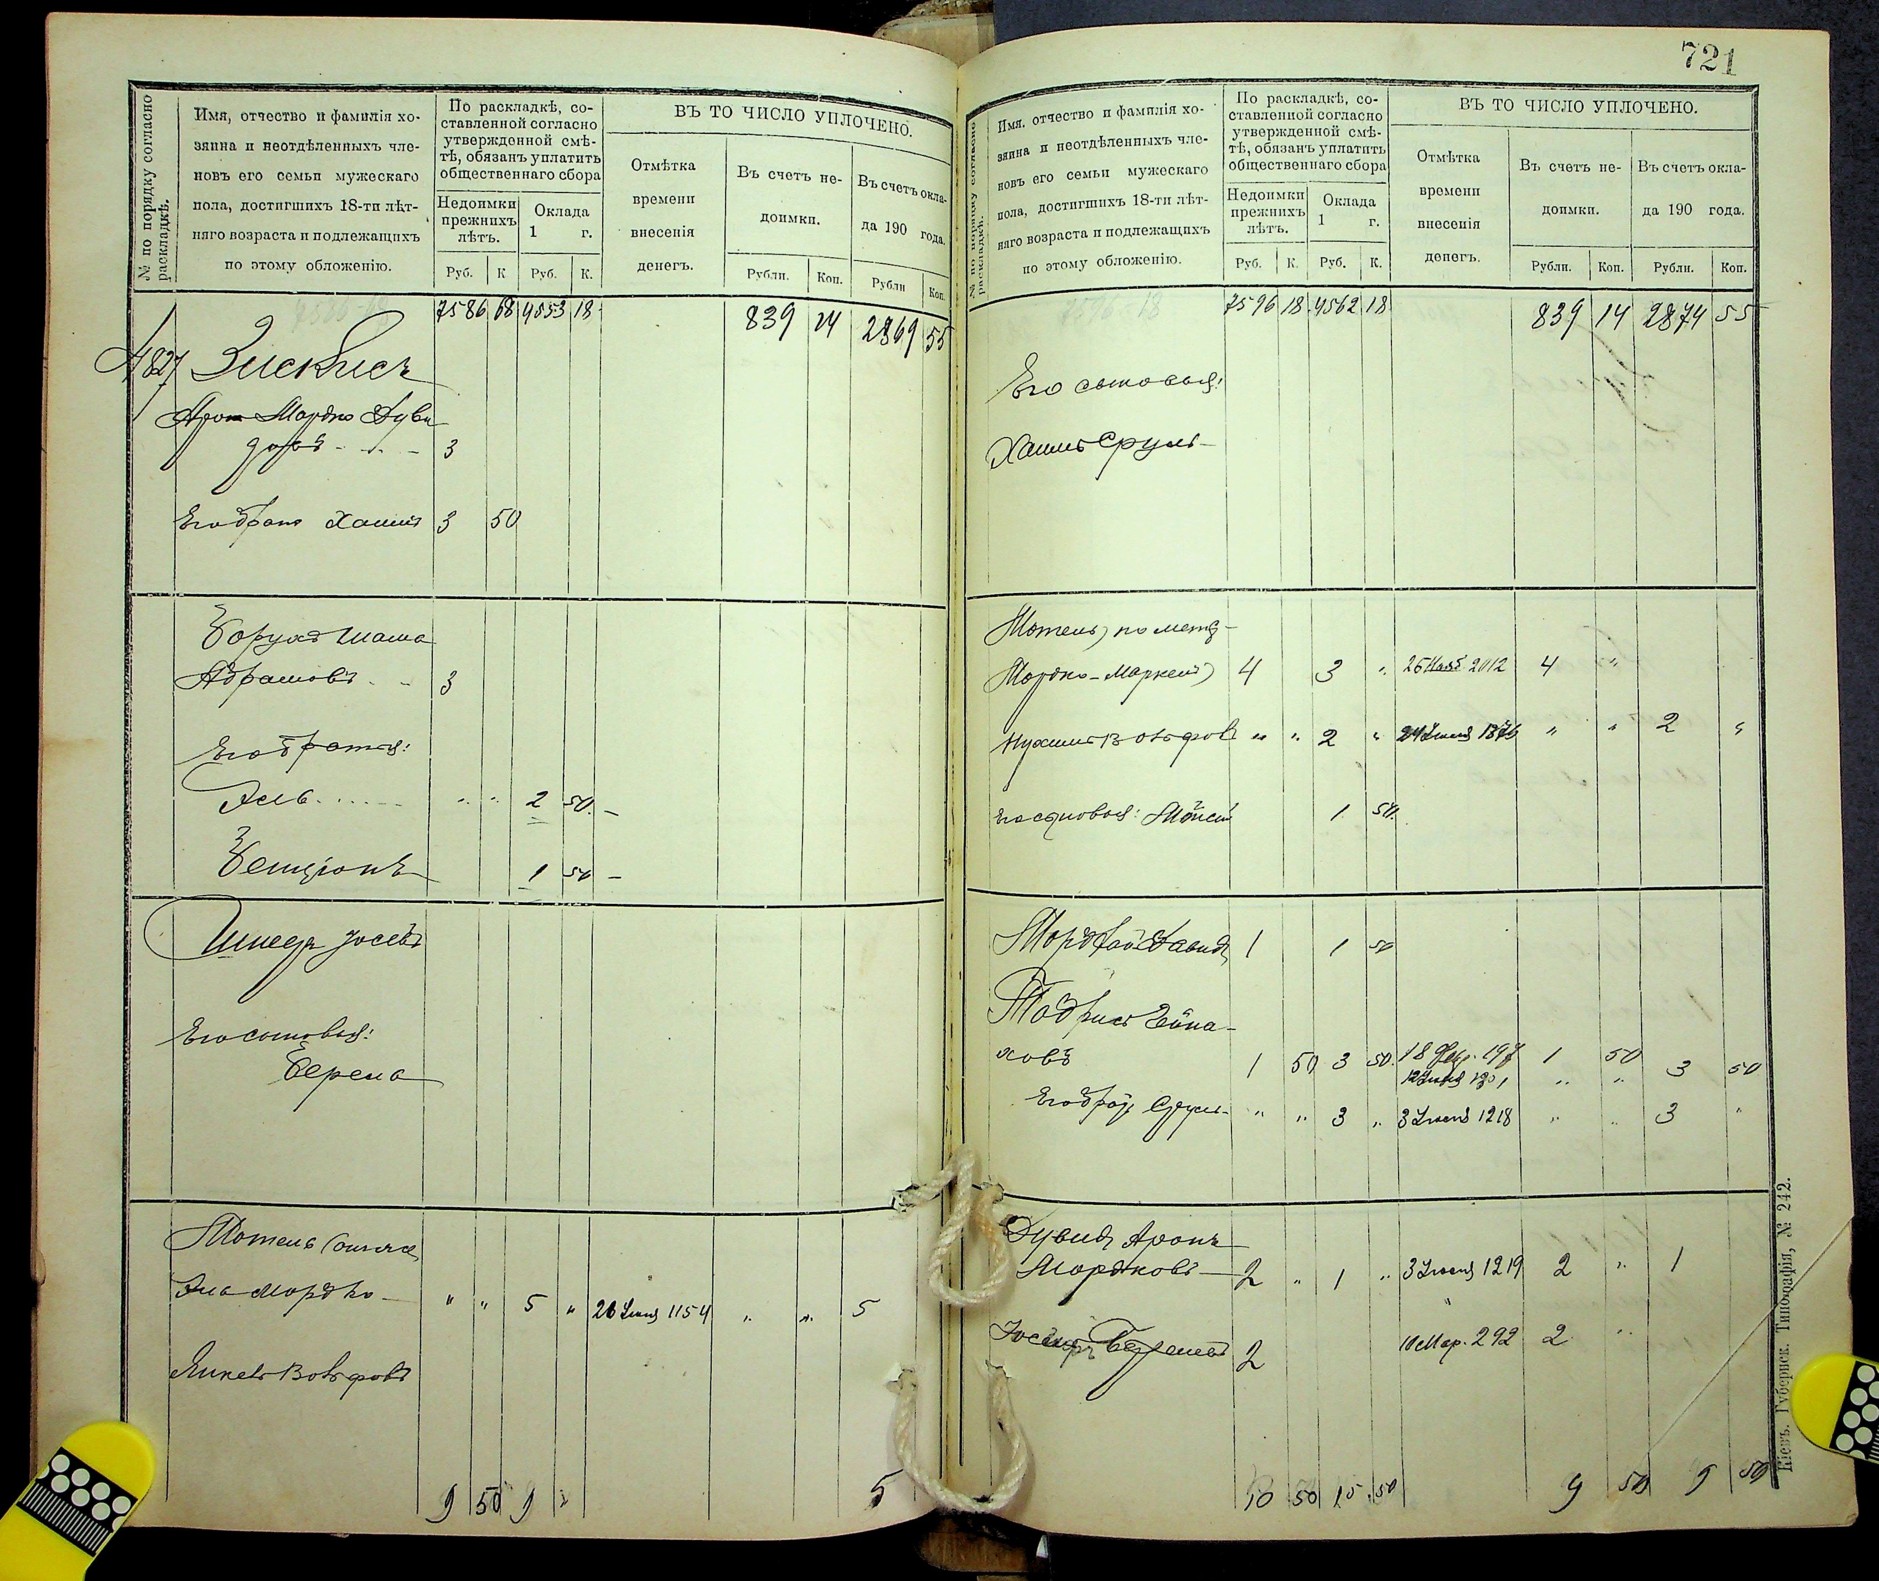 721
№ по порядку согласно раскладкѣ.
Имя, отчество и фамилія хо-
зяина и неотдѣленныхъ чле-
новъ его семьи мужескаго
пола, достигшихъ 18-ти лѣт-
няго возраста и подлежащихъ
по этому обложенію.
По раскладкѣ, со-
ставленной согласно
утвержденной смѣ-
тѣ, обязанъ уплатить
общественнаго сбора
Недоимки
прежнихъ
лѣтъ.
Оклада
1 г.
Руб. К Руб. К.
ВЪ ТО ЧИСЛО УПЛОЧЕНО.
Отмѣтка
времени
внесенія
денегъ.
Въ счетъ не-
доимки.
Въ счетъ окла-
да 190 года.
Рубли. Коп. Рубли Коп.
7586 68 4553 18
839 14 2869 55
827 Зискисъ
Арон Мордко Дуви
довъ 3
Его братъ Хаимъ 3 50
Борухъ Шама
Абрамовъ 3
Его братья:
Эль " " 2 50
Бенціонъ 1 50
Іосевъ
Его сыновья:
Берела
Мотель
Эля Мордко " " 5 " 26 Іюня 1154 " " 5
Янкель Вольфовъ
9 50 9 "
5
№ по порядку согласно раскладкѣ.
Имя, отчество и фамилія хо-
зяина и неотдѣленныхъ чле-
новъ его семьи мужескаго
пола, достигшихъ 18-ти лѣт-
няго возраста и подлежащихъ
по этому обложенію.
По раскладкѣ, со-
ставленной согласно
утвержденной смѣ-
тѣ, обязанъ уплатить
общественнаго сбора
Недоимки
прежнихъ
лѣтъ.
Оклада
1 г.
Руб. К. Руб. К.
ВЪ ТО ЧИСЛО УПЛОЧЕНО.
Отмѣтка
времени
внесенія
денегъ.
Въ счетъ не-
доимки.
Въ счетъ окла-
да 190 года.
Рубли. Коп. Рубли. Коп.
7596 18 4562 18
839 14 2874 55
Его сыновья:
Хаимъ Сруль
Мотель, по метр-
Мордко-Маркель) 4 3 " 2012 4 "
Нухимъ Вольфовъ " " 2 " " " 2 "
Его сыновья: Мойсей 1 50
Мордхай Давидъ 1 1 50
Тодрисъ Ейна-
ховъ 1 50 3 50 1 50 3 50
Его братъ Сруль " " 3 " 3 Іюля 1218 " " 3 "
Дувидъ Аронъ
Мордковъ 2 " 1 " 3 Іюля 1219 2 " 1
Іосифъ Береловъ 2 10 Мар. 292 2 "
10 50 15 50
9 50 9 50
Кіевъ. Губернск. Типографія, № 242.